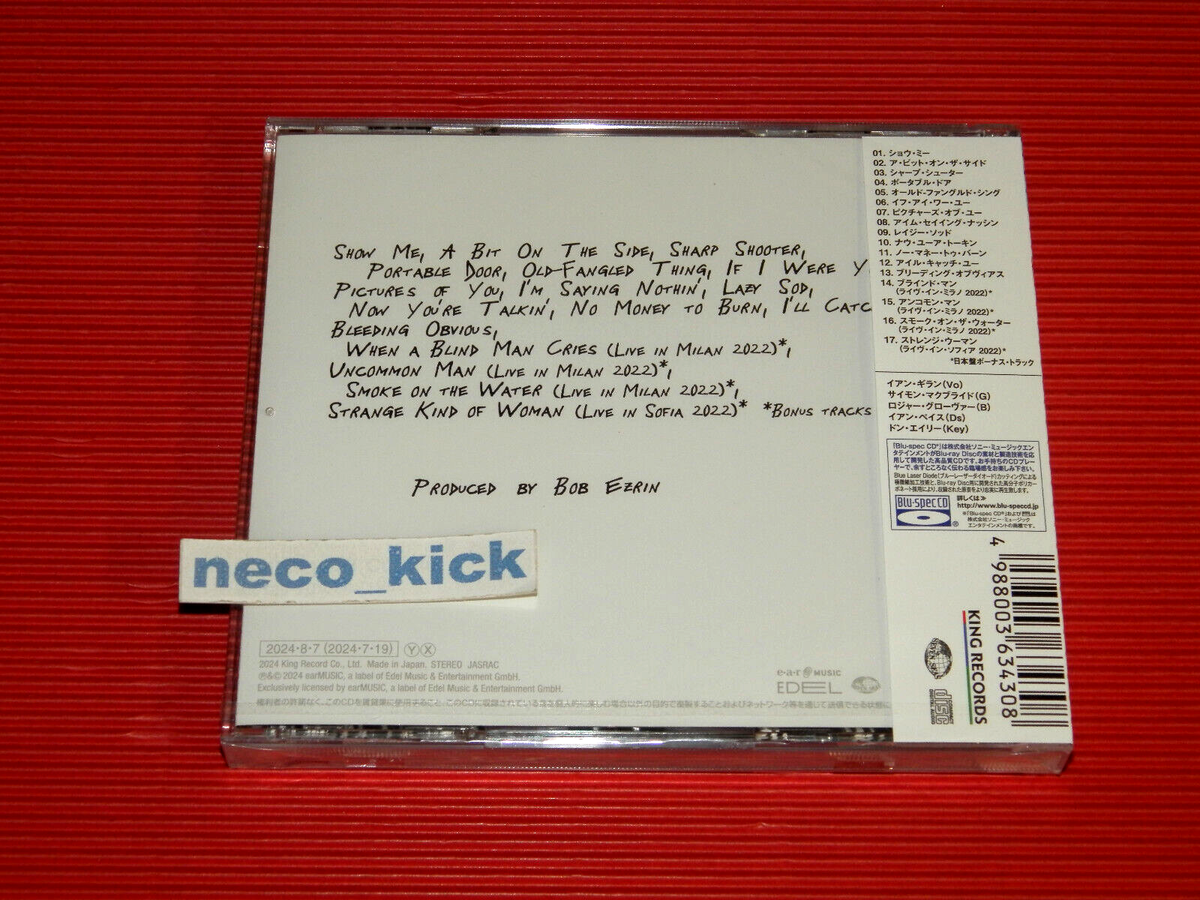 SHOW ME, A BIT ON THE SIDE, SHARP SHOOTER,
PORTABLE DOOR, OLD-FANGLED THING, IF I WERE Y
PICTURES OF YOU, I'M SAYING NOTHIN', LAZY SOD,
NOW YOU'RE TALKIN', NO MONEY TO BURN, I'LL CATC
BLEEDING OBVIOUS,
WHEN A BLIND MAN CRIES (LIVE IN MILAN 2022)*,
UNCOMMON MAN (LIVE IN MILAN 2022)*,
SMOKE ON THE WATER (LIVE IN MILAN 2022)*,
STRANGE KIND OF WOMAN (LIVE IN SOFIA 2022)* *BONUS TRACKS
PRODUCED BY BOB EZRIN
neco_kick
2024・8・7 (2024・7・19) Y X
2024 King Record Co., Ltd. Made in Japan. STEREO JASRAC
℗&© 2024 earMUSIC, a label of Edel Music & Entertainment GmbH.
Exclusively licensed by earMUSIC, a label of Edel Music & Entertainment GmbH.
e・a・r MUSIC
EDEL
01. ショウ・ミー
02. ア・ビット・オン・ザ・サイド
03. シャープ・シューター
04. ポータブル・ドア
05. オールド-ファングルド・シング
06. イフ・アイ・ワー・ユー
07. ピクチャーズ・オブ・ユー
08. アイム・セイイング・ナッシン
09. レイジー・ソッド
10. ナウ・ユーア・トーキン
11. ノー・マネー・トゥ・バーン
12. アイル・キャッチ・ユー
13. ブリーディング・オブヴィアス
14. ブラインド・マン
(ライヴ・イン・ミラノ 2022)*
15. アンコモン・マン
(ライヴ・イン・ミラノ 2022)*
16. スモーク・オン・ザ・ウォーター
(ライヴ・イン・ミラノ 2022)*
17. ストレンジ・ウーマン
(ライヴ・イン・ソフィア 2022)*
*日本盤ボーナス・トラック
イアン・ギラン(Vo)
サイモン・マクブライド(G)
ロジャー・グローヴァー(B)
イアン・ペイス(Ds)
ドン・エイリー(Key)
「Blu-spec CD®」は株式会社ソニー・ミュージックエン
タテインメントがBlu-ray Discの素材と製造技術を応
用して開発した高品質CDです。お手持ちのCDプレー
ヤーで、余すところなく伝わる臨場感をお楽しみ下さい。
Blu-spec CD
詳しくは≫
http://www.blu-speccd.jp
4 988003 634308
KING RECORDS
disc